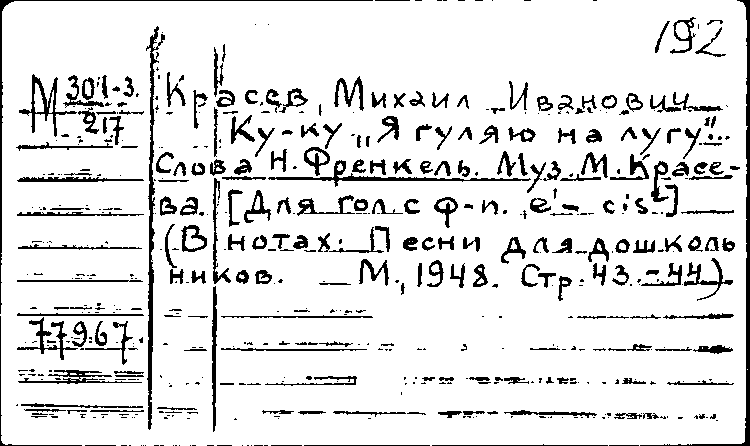 192
М 301-3.
217
Красев, Михаил Иванович
Ку-ку „Я гуляю на лугу"...
Слова Н. Френкель. Муз. М. Красе-
ва. [Для гол. с ф-п. e¹ – cis²]
(В нотах: Песни для дошколь
ников. М., 1948. Стр. 43.-44)
77967.